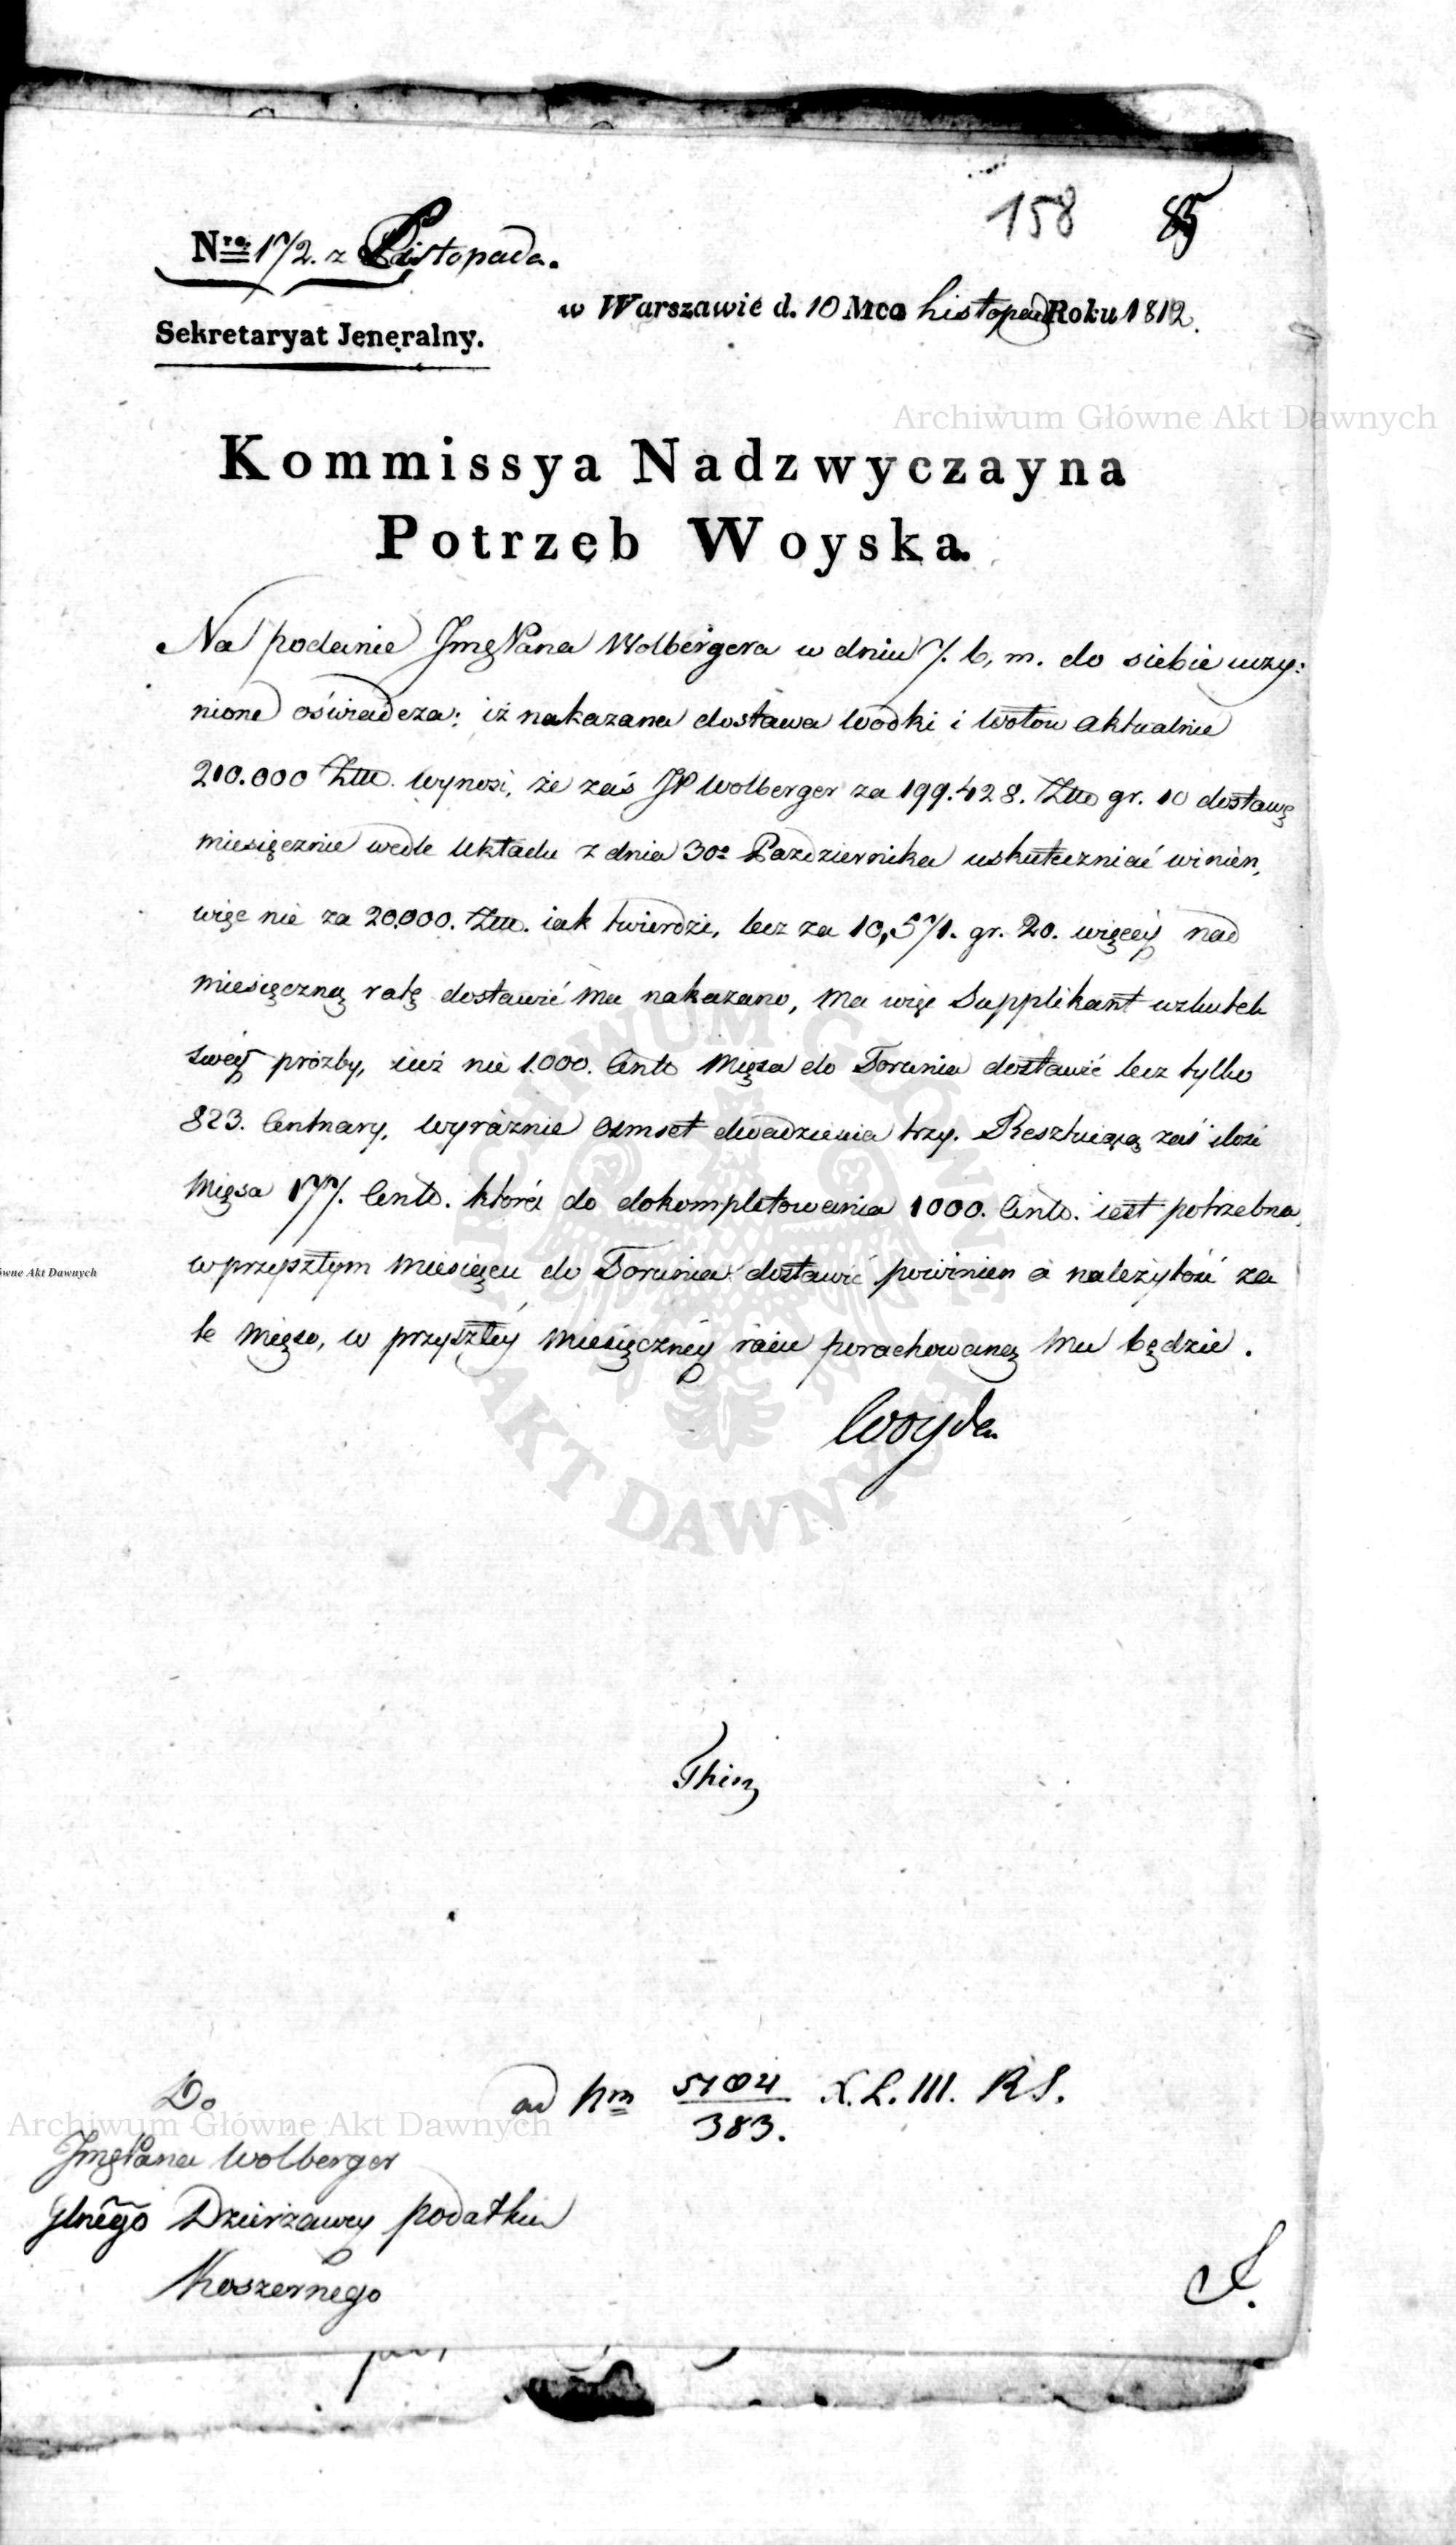 158 85
Nro. 172. z Listopada.
w Warszawie d. 10 Mca Listopad Roku 1812.
Sekretaryat Jeneralny.
Archiwum Główne Akt Dawnych
Kommissya Nadzwyczayna
Potrzeb Woyska.
Na podanie JmgPana Wolbergera w dniu 7. b, m. do siebie uczy:
nione oświadcza: iż nakazana dostawa wodki i wołow aktualnie
210.000 Złłł. wynosi, że zaś JP Wolberger za 199.428. Złłł gr. 10 dostawę
miesięcznie wedle Układu z dnia 30o Pazdziernika uskuteczniać winien,
więc nie za 20.000. Złłł. iak twierdzi, lecz za 10,571. gr. 20. więcey nad
miesięczną ratę dostawić mu nakazano, ma więc Supplikant wskutek
swey prozby, iuż nie 1.000. Cent Mięsa do Torunia dostawić lecz tylko
823. Centnary, wyraznie osmset dwadziescia trzy. Resztuiącą zaś ilosć
Mięsa 177. Cent. ktora do dokompletowania 1000. Cent. iest potrzebna,
w przyszłym miesiącu do Torunia dostawić powinien a należytość za
te mięso, w przyszłey miesięczney racie porachowaną mu będzie.
Woyda
ARCHIWUM GŁÓWNE AKT DAWNYCH
ówne Akt Dawnych
Do ad Nrm 5104/383. X.L.III. RS.
Archiwum Główne Akt Dawnych
JmgPana Wolberger
Jlnego Dzierżawcy podatku
Koszernego